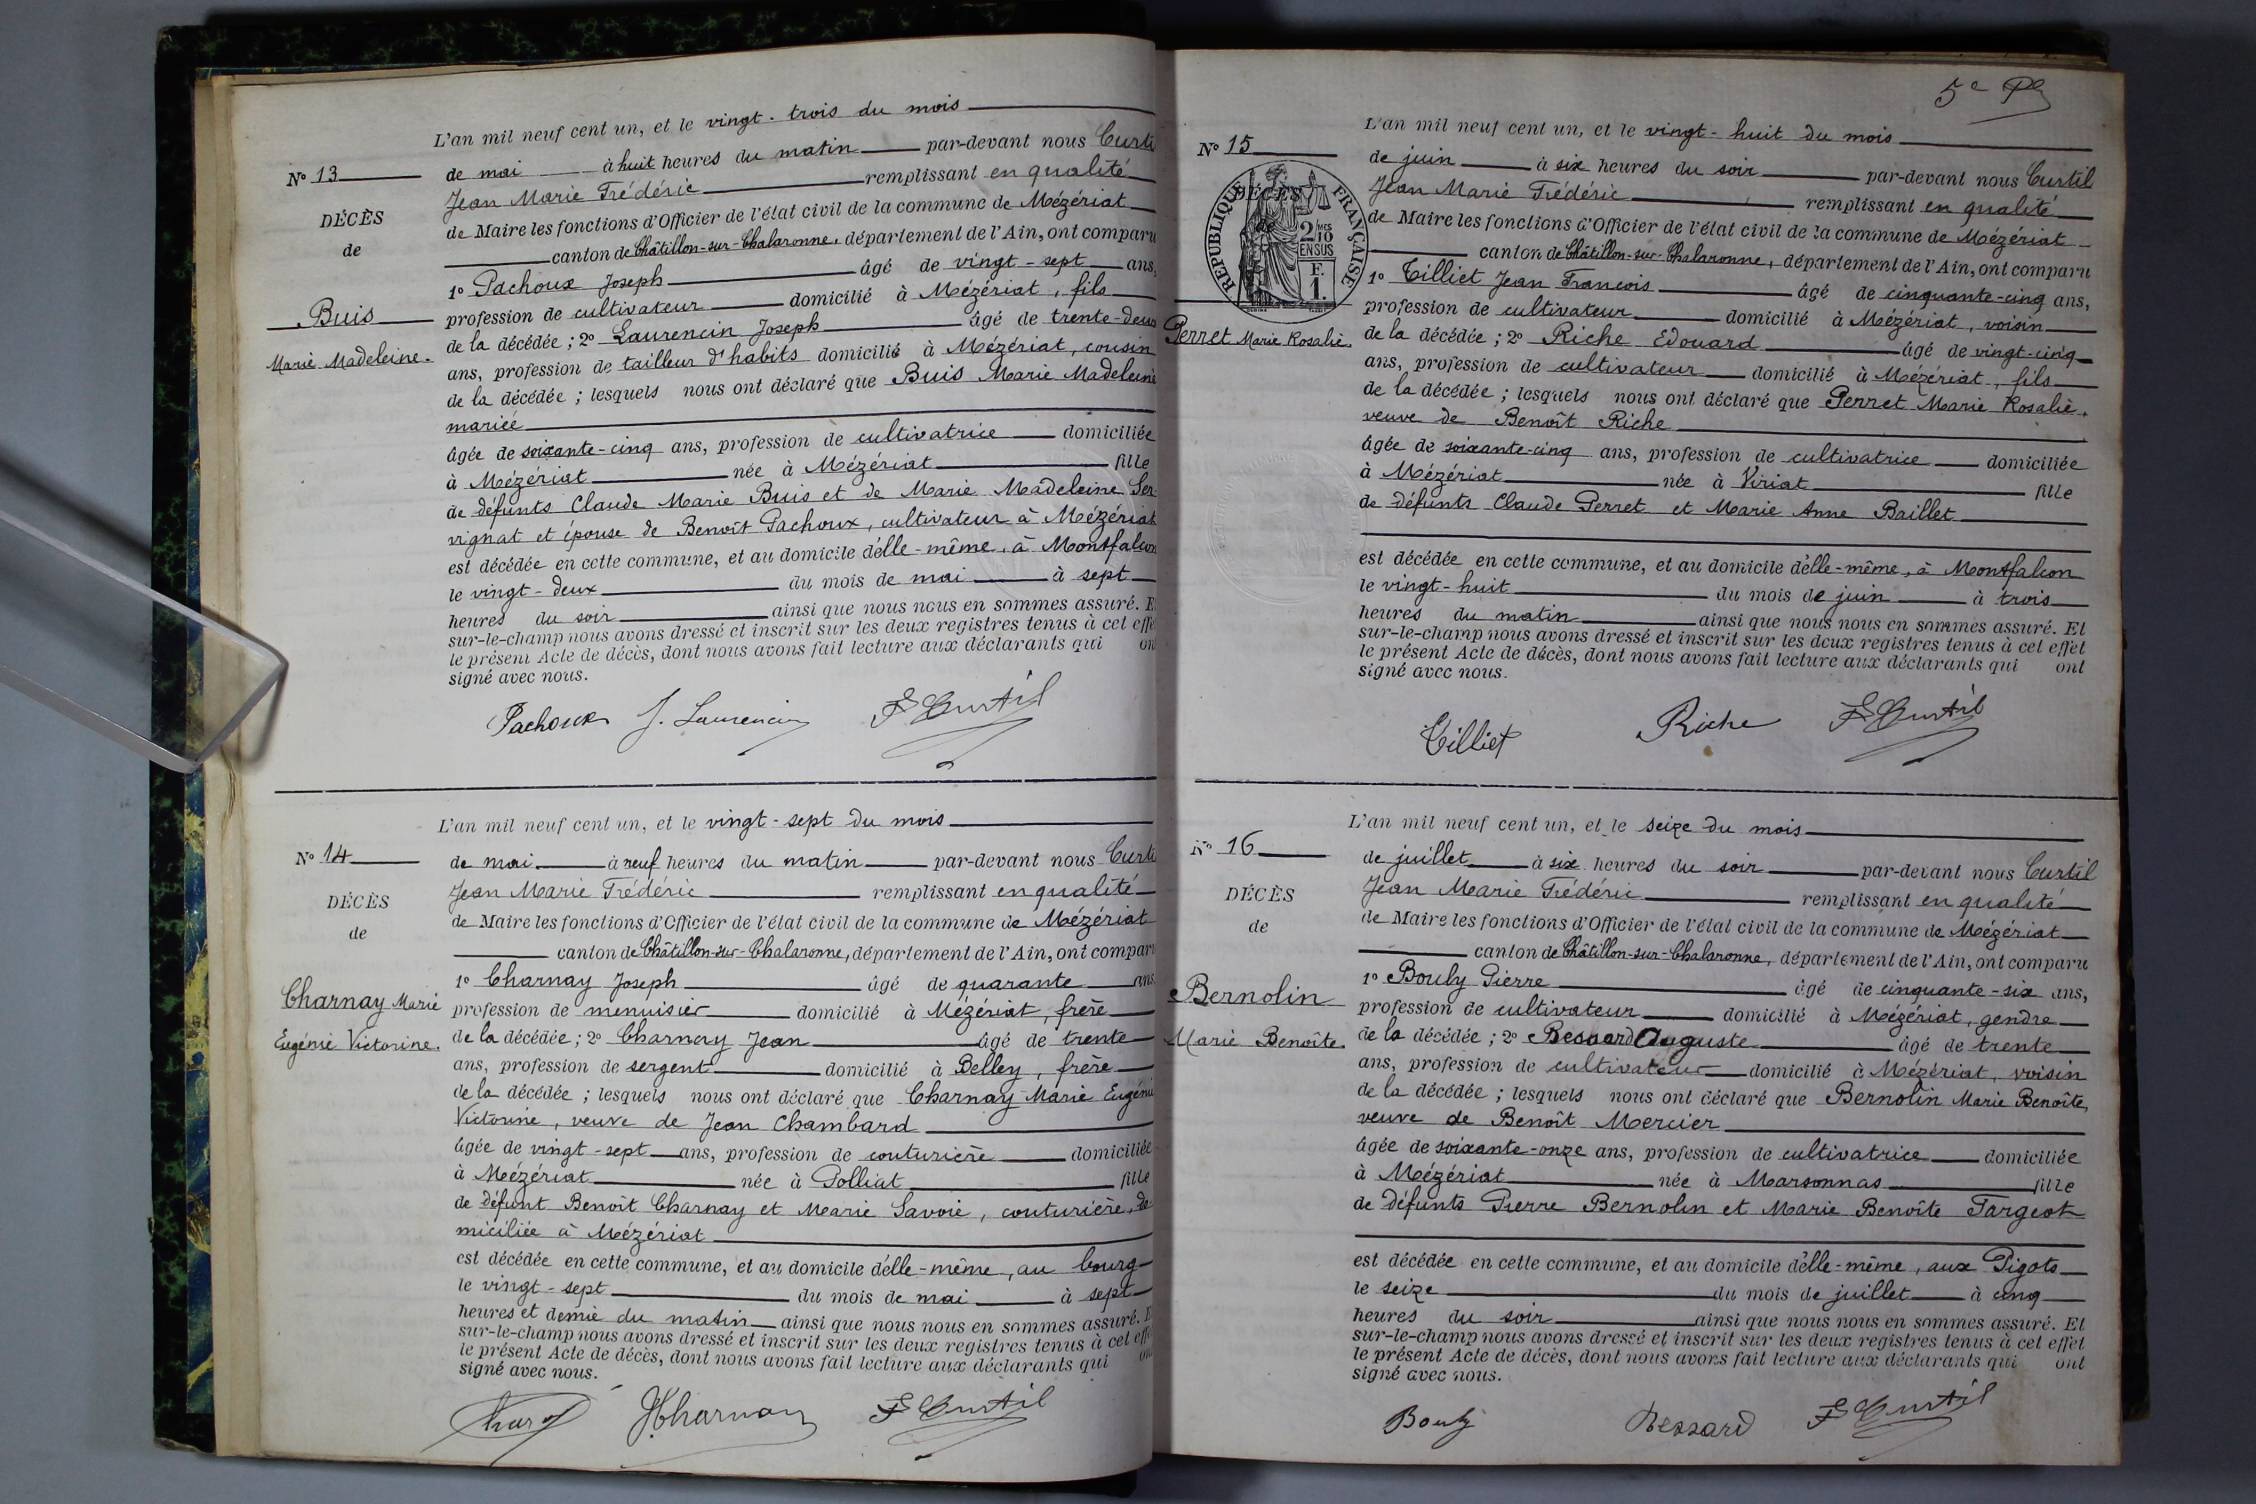 L'an mil neuf cent un, et le vingt-trois du mois
Nº 13
de mai à huit heures du matin par-devant nous Curti
Jean Marie Frédéric remplissant en qualité
DÉCÈS
de Maire les fonctions d'Officier de l'état civil de la commune de Mézériat
de
canton de Châtillon-sur-Chalaronne, département de l'Ain, ont comparu
1º Pachoux Joseph âgé de vingt-sept ans,
Buis
profession de cultivateur domicilié à Mézériat, fils
de la décédée ; 2º Laurencin Joseph âgé de trente-deux
Marie Madeleine.
ans, profession de tailleur d'habits domicilié à Mézériat, cousin
de la décédée ; lesquels nous ont déclaré que Buis Marie Madeleine
mariée
âgée de soixante-cinq ans, profession de cultivatrice domiciliée
à Mézériat née à Mézériat fille
de défunts Claude Marie Buis et de Marie Madeleine Ser
vignat et épouse de Benoît Pachoux, cultivateur à Mézériat
est décédée en cette commune, et au domicile d'elle-même, à Montfalcon
le vingt-deux du mois de mai à sept
heures du soir ainsi que nous nous en sommes assuré. E
sur-le-champ nous avons dressé et inscrit sur les deux registres tenus à cet effe
le présent Acte de décès, dont nous avons fait lecture aux déclarants qui on
signé avec nous.
Pachoux J. Laurencin F Curtil
L'an mil neuf cent un, et le vingt-sept du mois
Nº 14
de mai à neuf heures du matin par-devant nous Curti
Jean Marie Frédéric remplissant en qualité
DÉCÈS
de Maire les fonctions d'Officier de l'état civil de la commune de Mézériat
de
canton de Châtillon-sur-Chalaronne, département de l'Ain, ont compar
1º Charnay Joseph âgé de quarante ans
Charnay Marie
profession de menuisier domicilié à Mézériat, frère
Eugénie Victorine.
de la décédée ; 2º Charnay Jean âgé de trente
ans, profession de sergent domicilié à Belley, frère
de la décédée ; lesquels nous ont déclaré que Charnay Marie Eugénie
Victorine, veuve de Jean Chambard
âgée de vingt-sept ans, profession de couturière domiciliée
à Mézériat née à Polliat fille
de défunt Benoît Charnay et Marie Savoie, couturière, do-
miciliée à Mézériat
est décédée en cette commune, et au domicile d'elle-même, au bourg
le vingt-sept du mois de mai à sept
heures et demie du matin ainsi que nous nous en sommes assuré. E
sur-le-champ nous avons dressé et inscrit sur les deux registres tenus à cet effe
le présent Acte de décès, dont nous avons fait lecture aux déclarants qui on
signé avec nous.
J Charnay F Curtil
5e
L'an mil neuf cent un, et le vingt-huit du mois
Nº 15
de juin à six heures du soir par-devant nous Curtil
Jean Marie Frédéric remplissant en qualité
DÉCÈS
RÉPUBLIQUE FRANÇAISE
2 MES
10
EN SUS
F.
1.
de Maire les fonctions d'Officier de l'état civil de la commune de Mézériat
canton de Châtillon-sur-Chalaronne, département de l'Ain, ont comparu
1º Tilliet Jean François âgé de cinquante-cinq ans,
profession de cultivateur domicilié à Mézériat, voisin
Perret Marie Rosalie.
de la décédée ; 2º Riche Edouard âgé de vingt-cinq
ans, profession de cultivateur domicilié à Mézériat, fils
de la décédée ; lesquels nous ont déclaré que Perret Marie Rosalie.
veuve de Benoît Riche
âgée de soixante-cinq ans, profession de cultivatrice domiciliée
à Mézériat née à Viriat fille
de défunts Claude Perret et Marie Anne Baillet
est décédée en cette commune, et au domicile d'elle-même, à Montfalcon
le vingt-huit du mois de juin à trois
heures du matin ainsi que nous nous en sommes assuré. Et
sur-le-champ nous avons dressé et inscrit sur les deux registres tenus à cet effet
le présent Acte de décès, dont nous avons fait lecture aux déclarants qui ont
signé avec nous.
Tilliet Riche F Curtil
L'an mil neuf cent un, et le seize du mois
Nº 16
de juillet à six heures du soir par-devant nous Curtil
Jean Marie Frédéric remplissant en qualité
DÉCÈS
de Maire les fonctions d'Officier de l'état civil de la commune de Mézériat
de
canton de Châtillon-sur-Chalaronne, département de l'Ain, ont comparu
1º Bouly Pierre âgé de cinquante-six ans,
Bernolin
profession de cultivateur domicilié à Mézériat, gendre
Marie Benoîte.
de la décédée ; 2º Bessard Auguste âgé de trente
ans, profession de cultivateur domicilié à Mézériat, voisin
de la décédée ; lesquels nous ont déclaré que Bernolin Marie Benoîte,
veuve de Benoît Mercier
âgée de soixante-onze ans, profession de cultivatrice domiciliée
à Mézériat née à Marsonnas fille
de défunts Pierre Bernolin et Marie Benoîte Fargeot
est décédée en cette commune, et au domicile d'elle-même, aux Pigots
le seize du mois de juillet à cinq
heures du soir ainsi que nous nous en sommes assuré. Et
sur-le-champ nous avons dressé et inscrit sur les deux registres tenus à cet effet
le présent Acte de décès, dont nous avons fait lecture aux déclarants qui ont
signé avec nous.
Bouly Bessard F Curtil